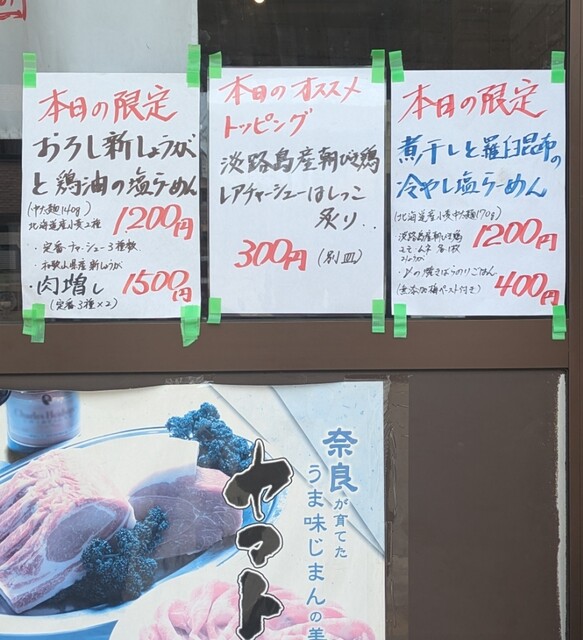 本日の限定
おろし新しょうが
と鶏油の塩らーめん
(中太麺140g)
北海道産小麦2種
1200円
・定番チャーシュー3種軟
・和歌山県産新しょうが
・肉増し 1500円
(定番3種×2)
本日のオススメ
トッピング
淡路島産朝びき鶏
レアチャーシューはしっこ
炙り..
300円 (別皿)
本日の限定
煮干しと羅臼昆布の
冷やし塩らーめん
(北海道産小麦中太麺170g)
1200円
淡路島産朝びき鶏
ムネ モモ 各1枚
・〆の焼きばらのりごはん
(無添加梅ペースト付き) 400円
奈良が育てた
うま味じまんの美
ヤマト